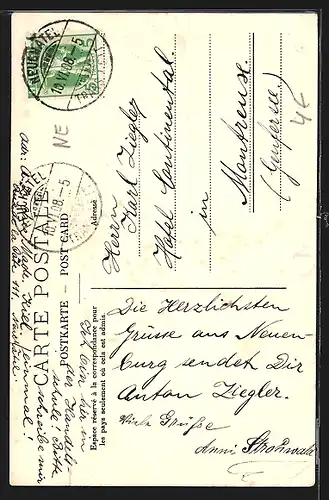 NEUCHÂTEL
10.VI.08.-5
NE
4€
CARTE POSTALE
POSTKARTE — POST CARD
Adresse
Espace réservé à la correspondance pour
les pays seulement où cela est admis.
Herrn
Karl Ziegler
Hotel Continental
in
Montreux.
(Genfersee)
Die Herzlichsten
Grüsse aus Neuen-
burg sendet Dir
Anton Ziegler.
Viele Grüße
Anni
Ich bin hier in
der Handels-
schule! Bitte
schreibe mir
auch einmal!